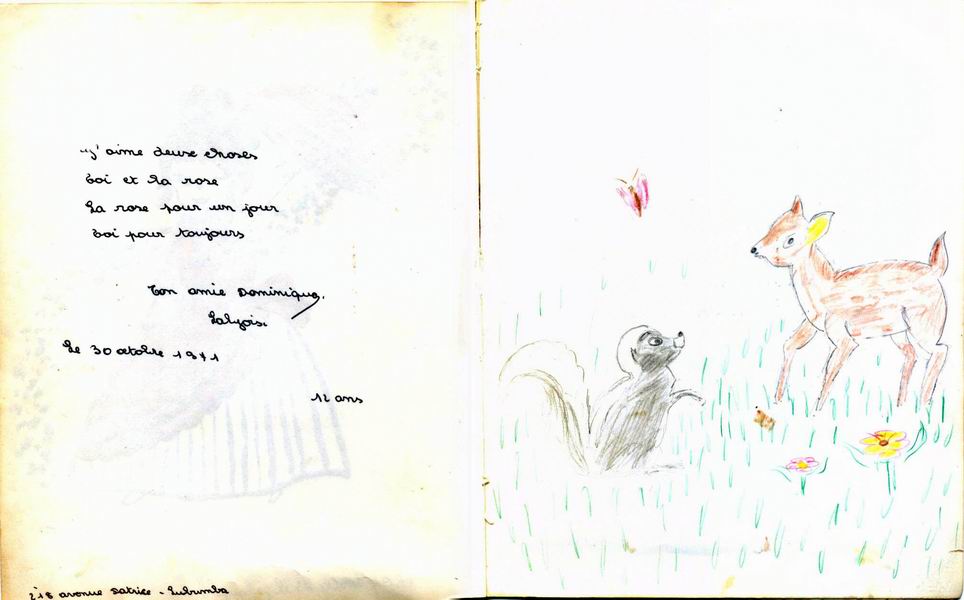 "J'aime deux choses
toi et la rose
La rose pour un jour
toi pour toujours
Ton amie Dominique.
Le 30 octobre 1971
12 ans
218 avenue